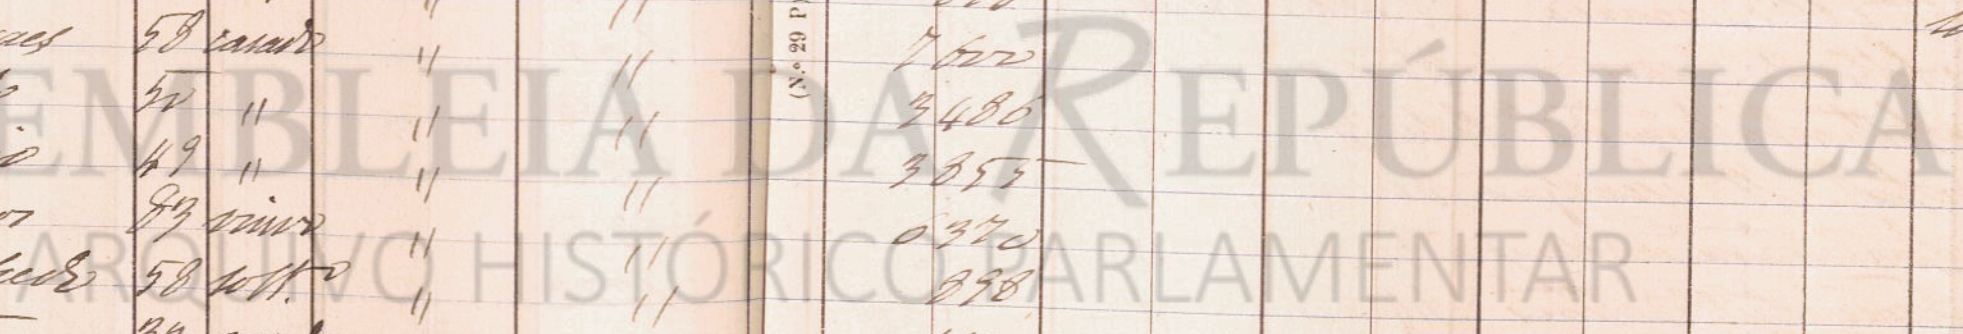 58 casado " " 7600
50 " " " 3480
49 " " " 3855
83 viuvo " " 6370
58 solt.º " " 898
(N.º 29 P
ASSEMBLEIA DA REPÚBLICA
ARQUIVO HISTÓRICO PARLAMENTAR